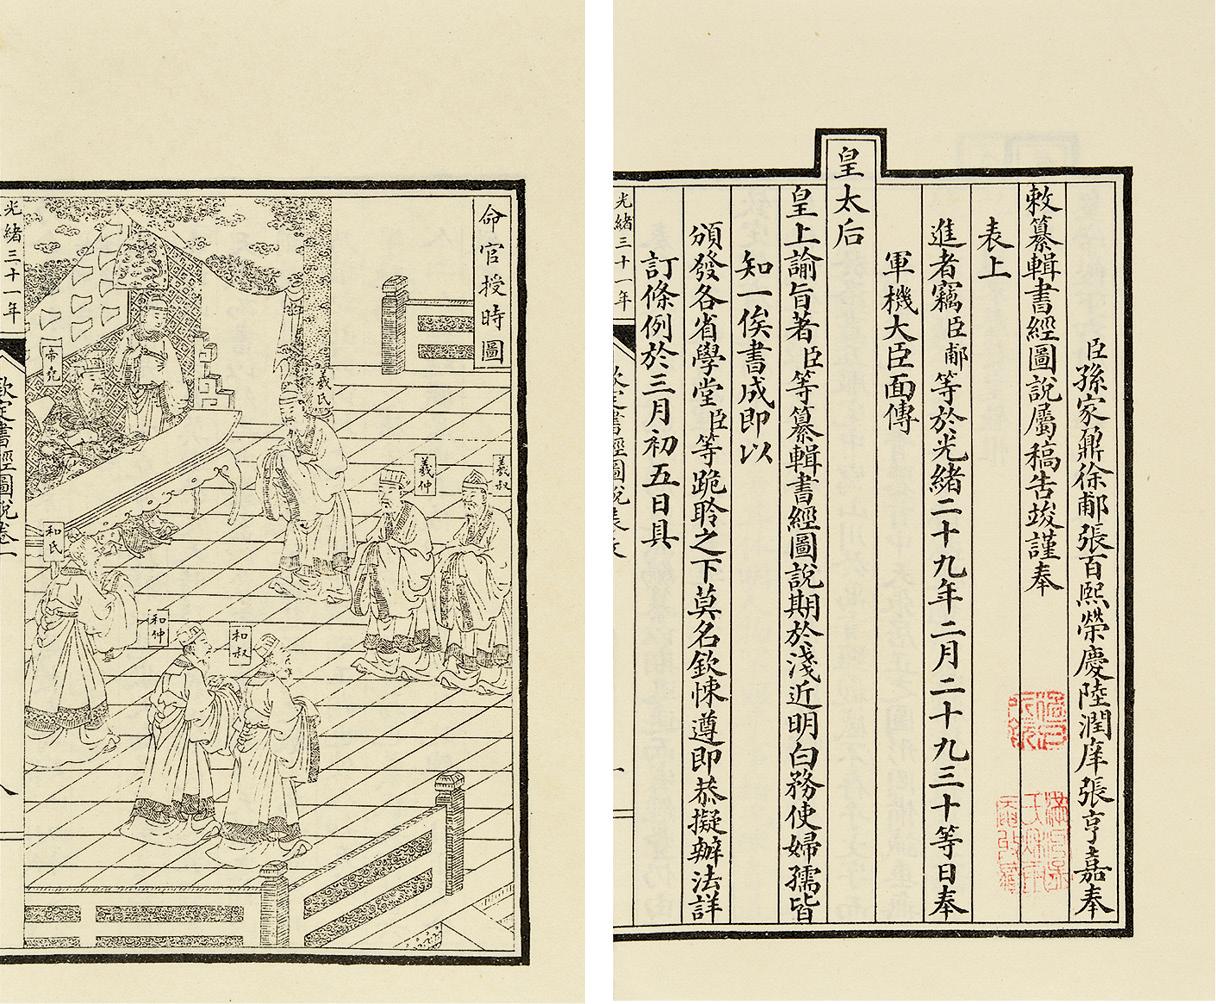 臣孫家鼐徐郙張百熙榮慶陸潤庠張亨嘉奉
敕纂輯書經圖說屬稿告竣謹奉
表上
進者竊臣郙等於光緒二十九年二月二十九三十等日奉
軍機大臣面傳
皇太后
皇上諭旨著臣等纂輯書經圖說期於淺近明白務使婦孺皆
知一俟書成即以
頒發各省學堂臣等跪聆之下莫名欽悚遵即恭擬辦法詳
訂條例於三月初五日具
光緒三十一年
欽定書經圖說表文
一
命官授時圖
羲叔
羲仲
羲氏
和叔
和仲
和氏
帝堯
光緒三十一年
欽定書經圖說卷一